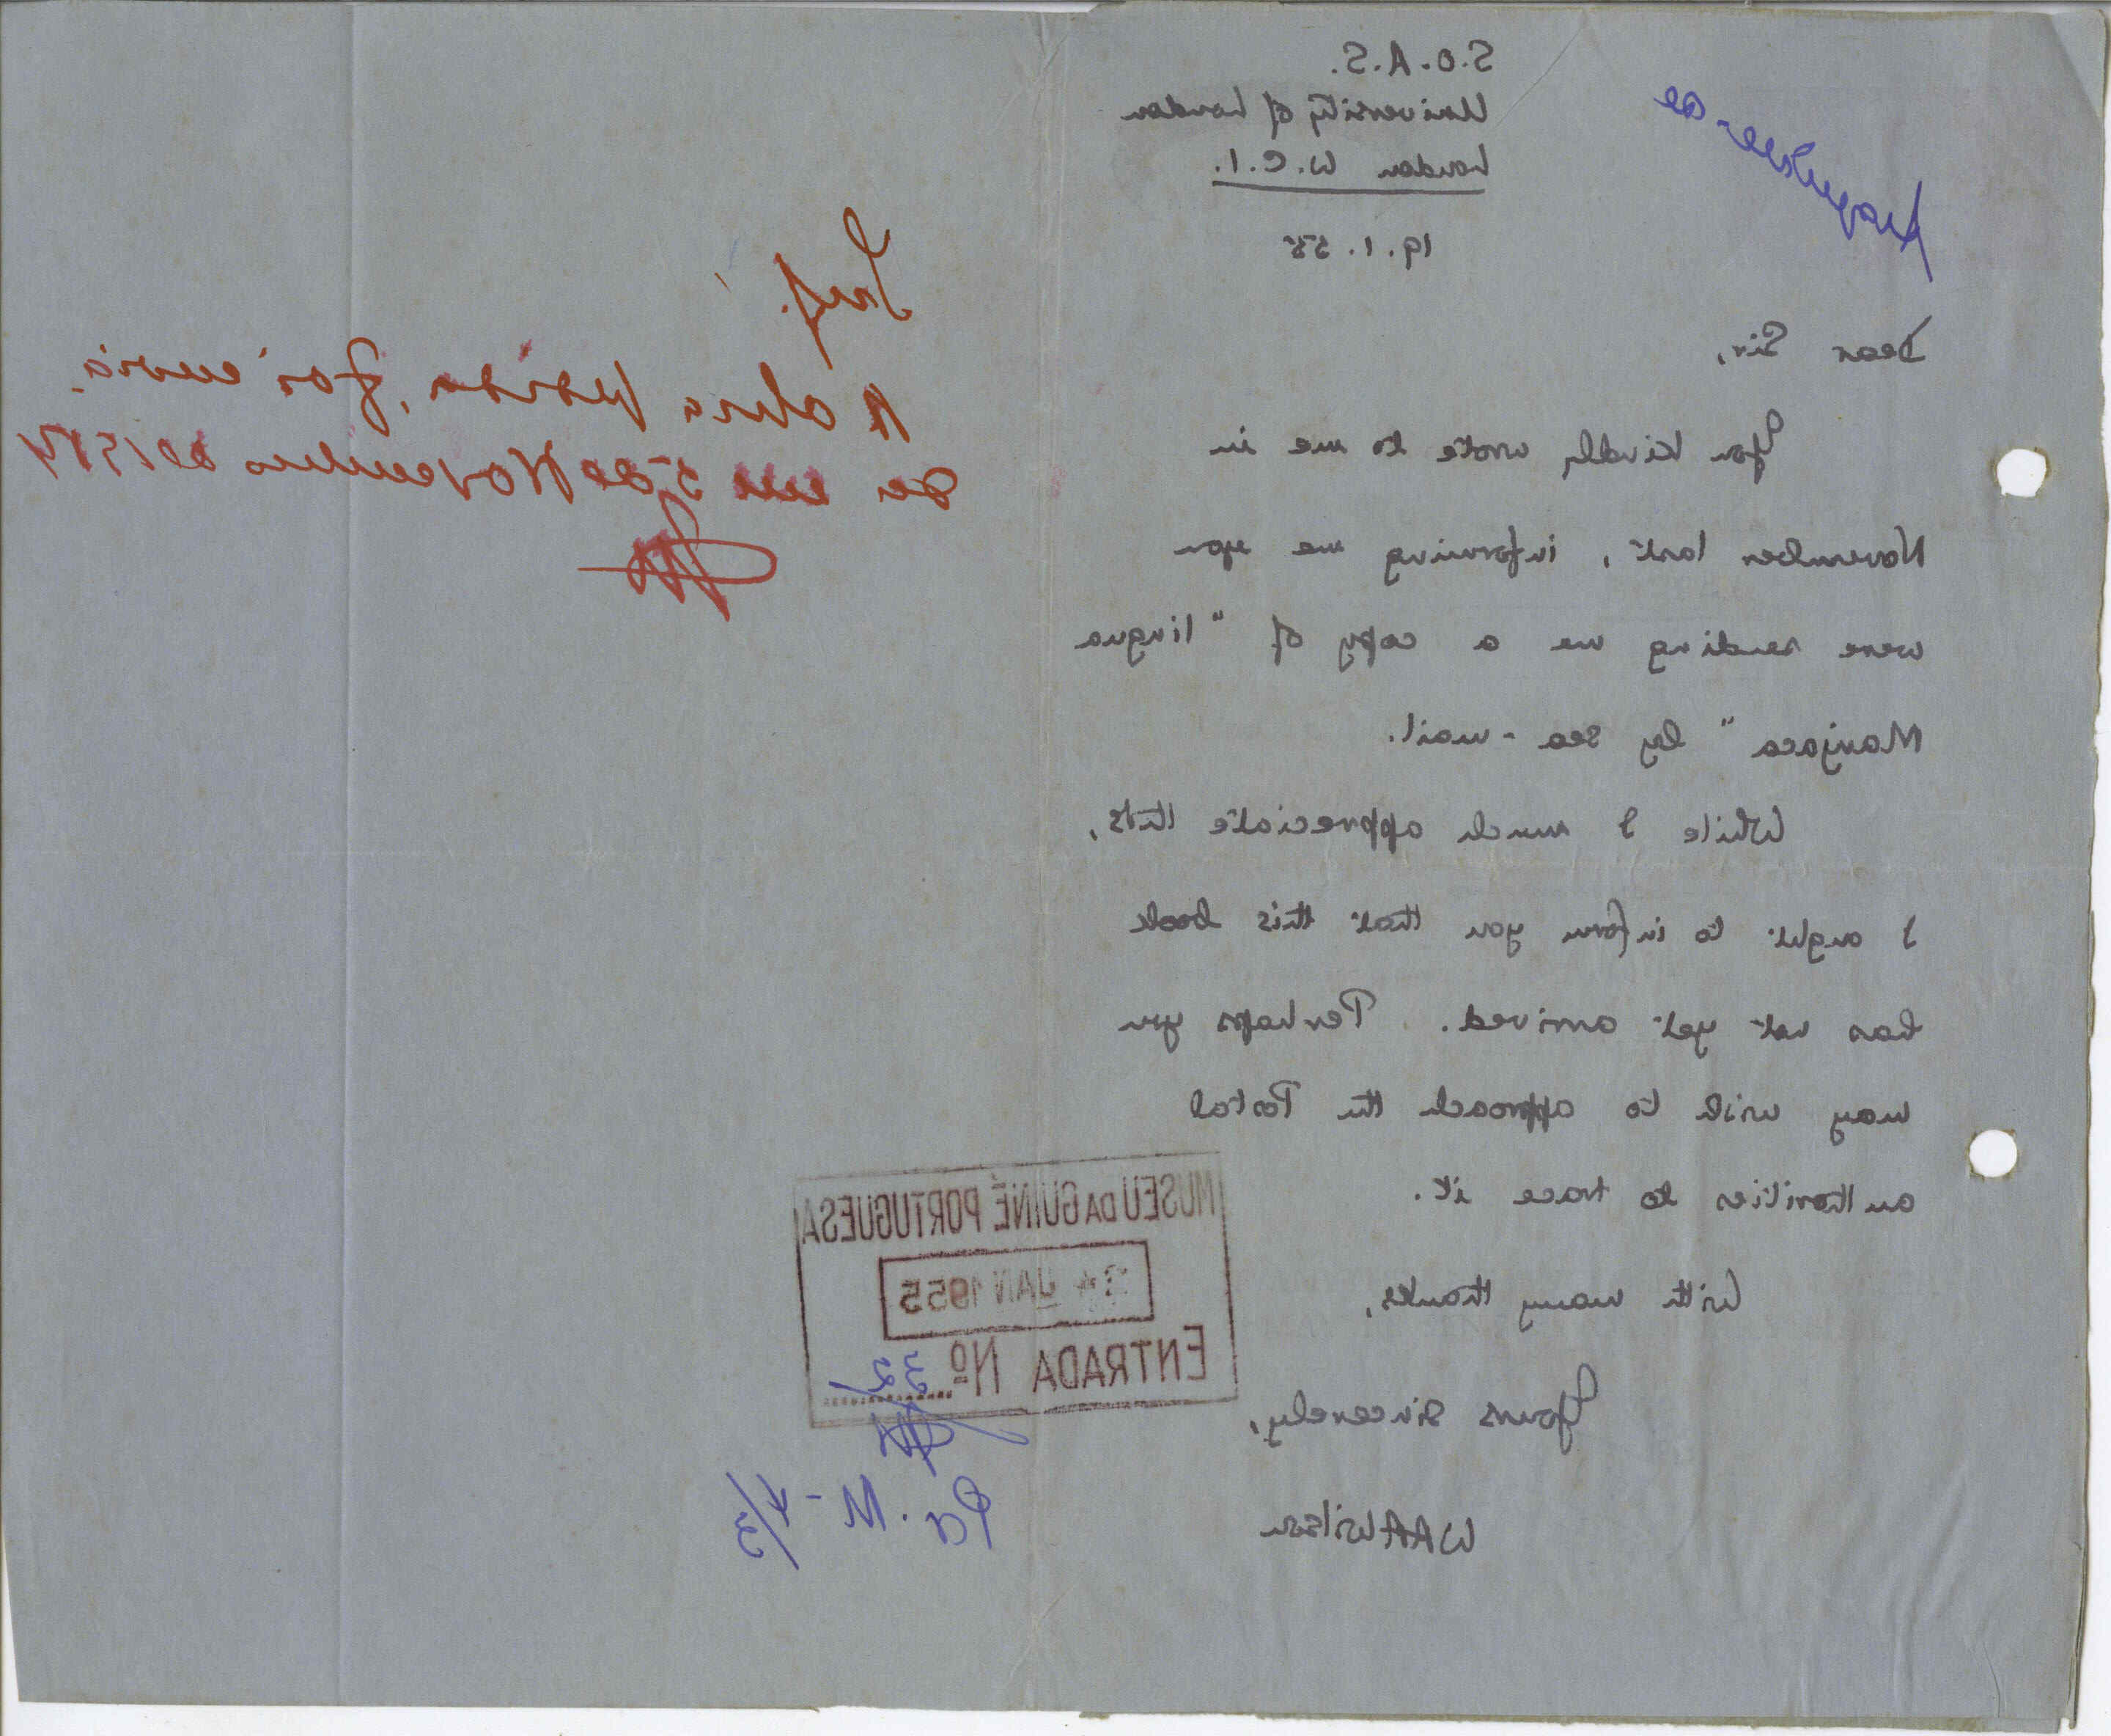 S.O.A.S.
University of London
London W.C.1.
19.1.55
Dear Sir,
You kindly wrote to me in
November last, informing me you
were sending me a copy of "lingua
Manjaca" by sea-mail.
While I much appreciate this,
I ought to inform you that this book
has not yet arrived. Perhaps you
may wish to approach the Postal
authorities to trace it.
With many thanks,
Yours sincerely,
WAAWilson
Inf.
A obra pedida, foi envia
da em 5 de Novembro de 1954
MUSEU DA GUINÉ PORTUGUESA
24 JAN 1955
ENTRADA Nº 32
Pa. M-4/3